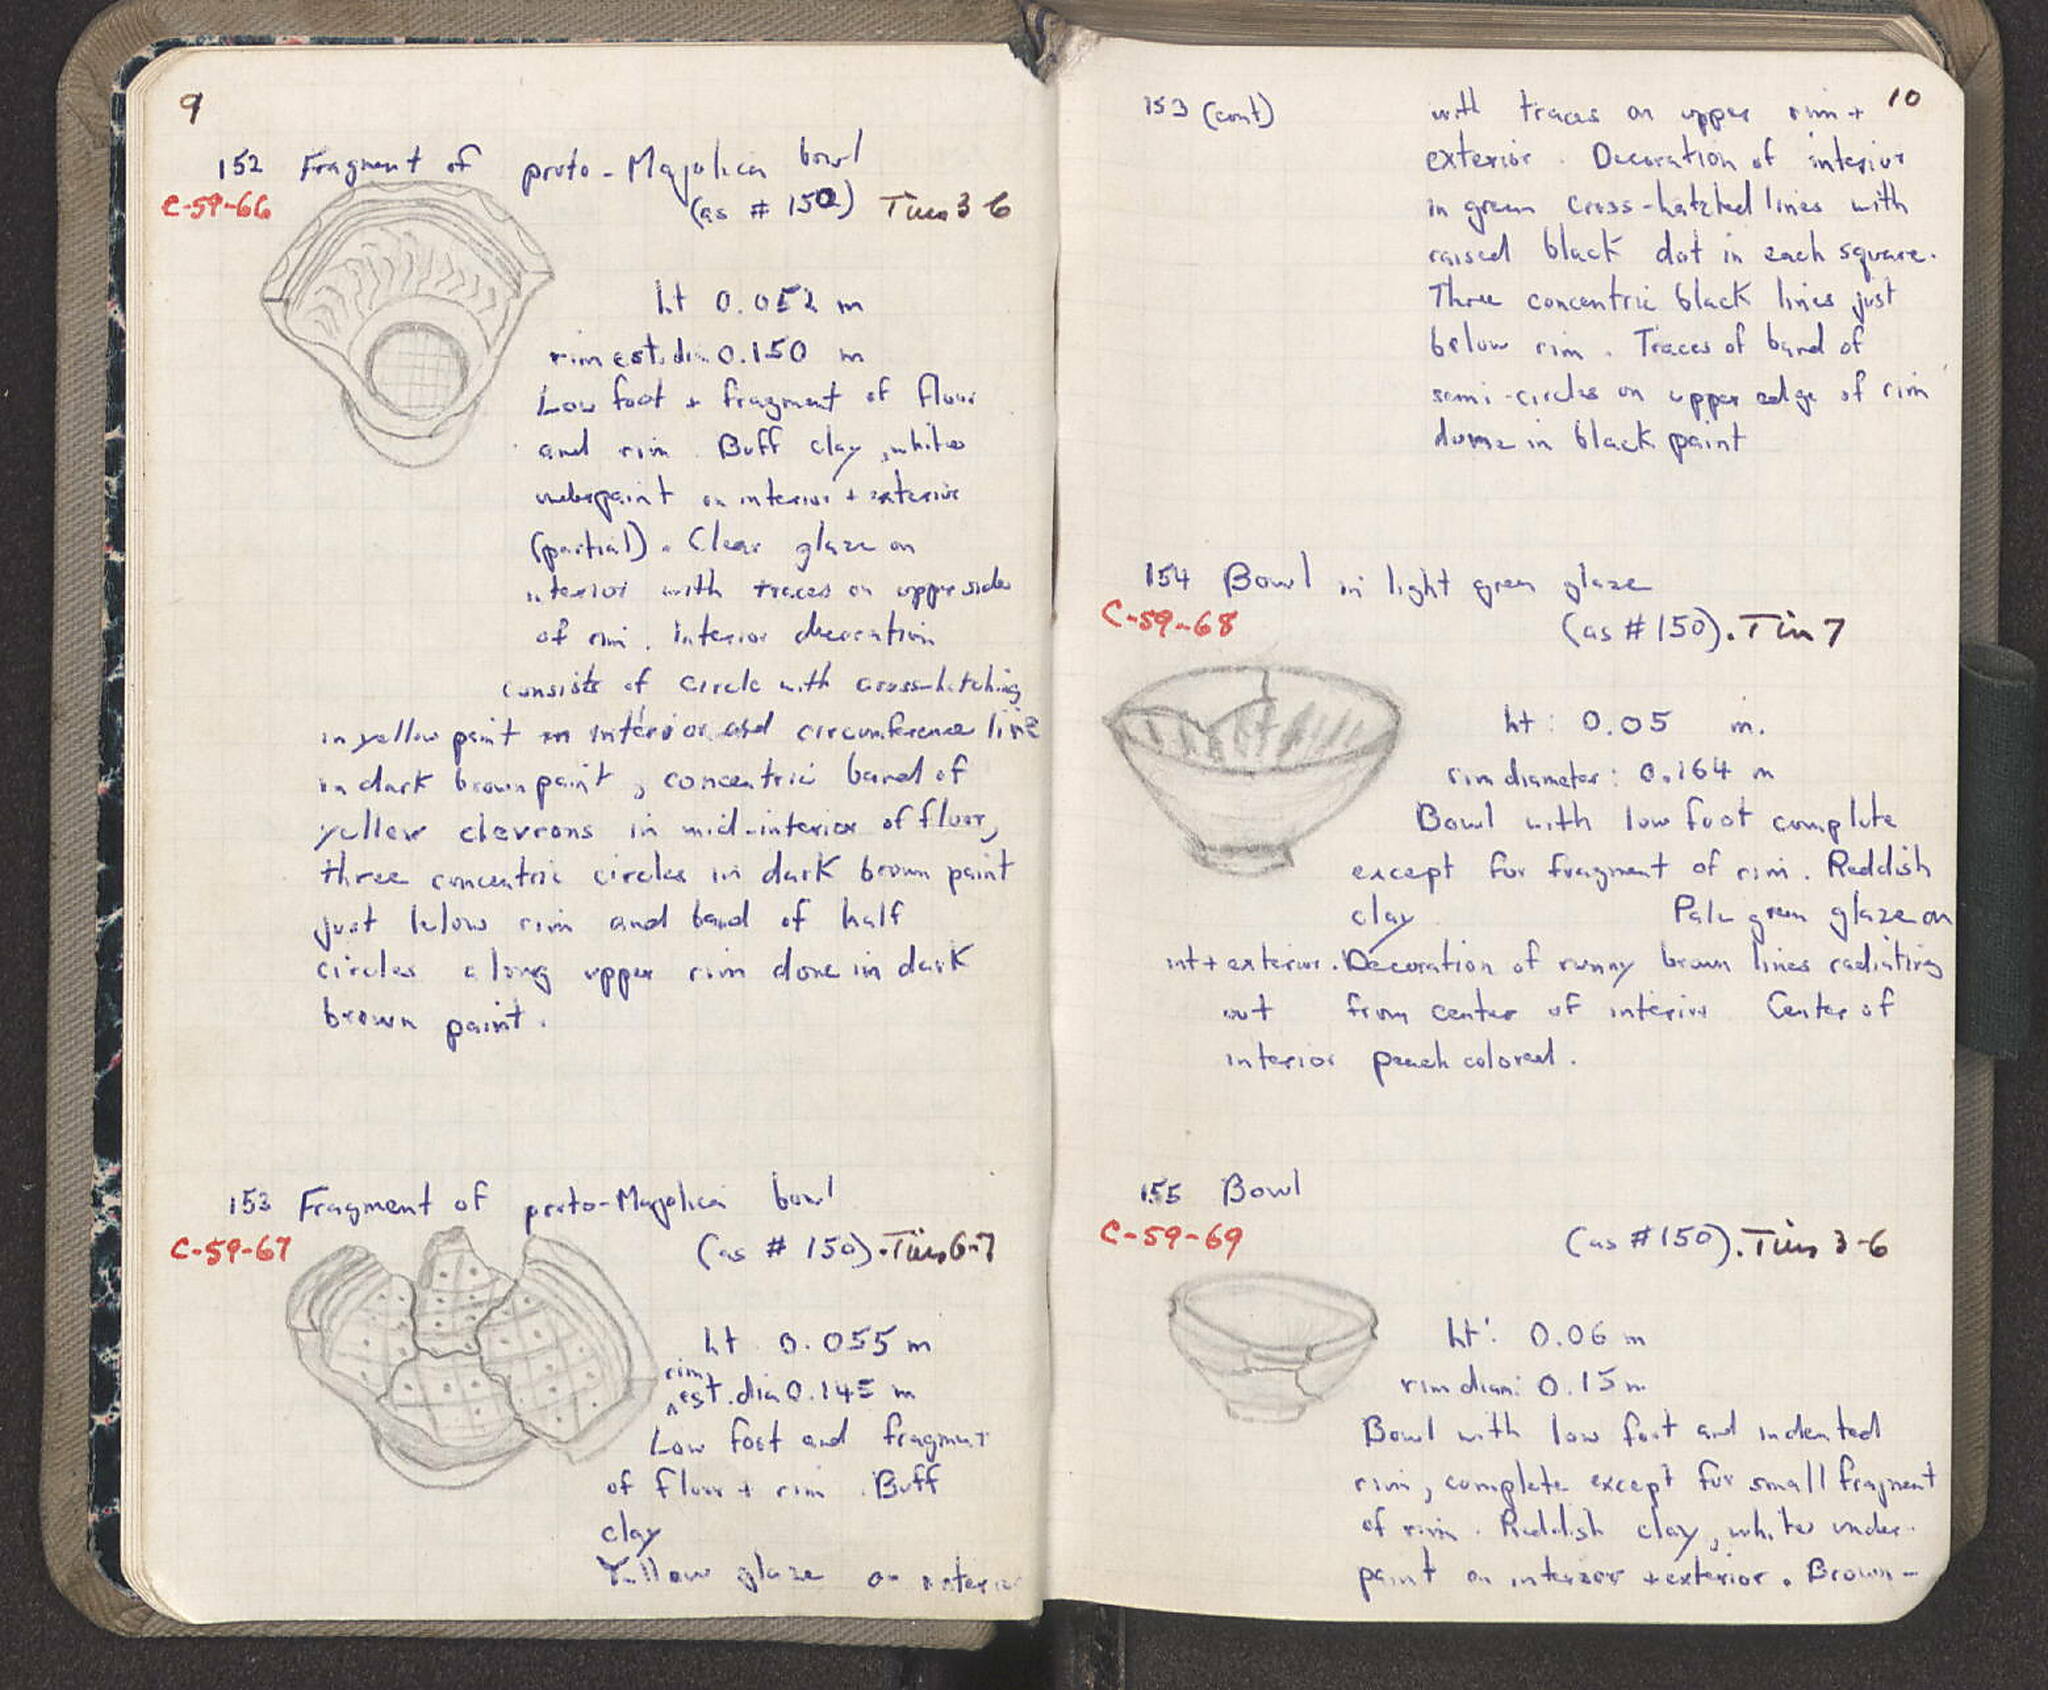 9
152 Fragment of proto-Majolica bowl
C-59-66
(as # 150) Tins 3-6
ht 0.052 m
rim est. di. 0.150 m
Low foot + fragment of floor
and rim. Buff clay, white
underpaint on interior + exterior
(partial). Clear glaze on
interior with traces on upper side
of rim. Interior decoration
consists of circle with cross-hatching
in yellow paint on interior and circumference line
in dark brown paint, concentric band of
yellow chevrons in mid-interior of floor,
three concentric circles in dark brown paint
just below rim and band of half
circles along upper rim done in dark
brown paint.
153 Fragment of proto-Majolica bowl
C-59-67
(as # 150). Tins 6-7
ht 0.055 m
rim
est. dia 0.145 m
Low foot and fragment
of floor + rim. Buff
clay
Yellow glaze on interior
10
153 (cont)
with traces on upper rim +
exterior. Decoration of interior
in green cross-hatched lines with
raised black dot in each square.
Three concentric black lines just
below rim. Traces of band of
semi-circles on upper edge of rim
done in black paint
154 Bowl in light green glaze
C-59-68
(as # 150). Tin 7
ht: 0.05 m.
rim diameter: 0.164 m
Bowl with low foot complete
except for fragment of rim. Reddish
clay Pale green glaze on
int + exterior. Decoration of runny brown lines radiating
out from center of interior Center of
interior peach colored.
155 Bowl
C-59-69
(as # 150). Tins 3-6
ht: 0.06 m
rim diam: 0.15 m
Bowl with low foot and indented
rim, complete except for small fragment
of rim. Reddish clay, white under-
paint on interior + exterior. Brown-